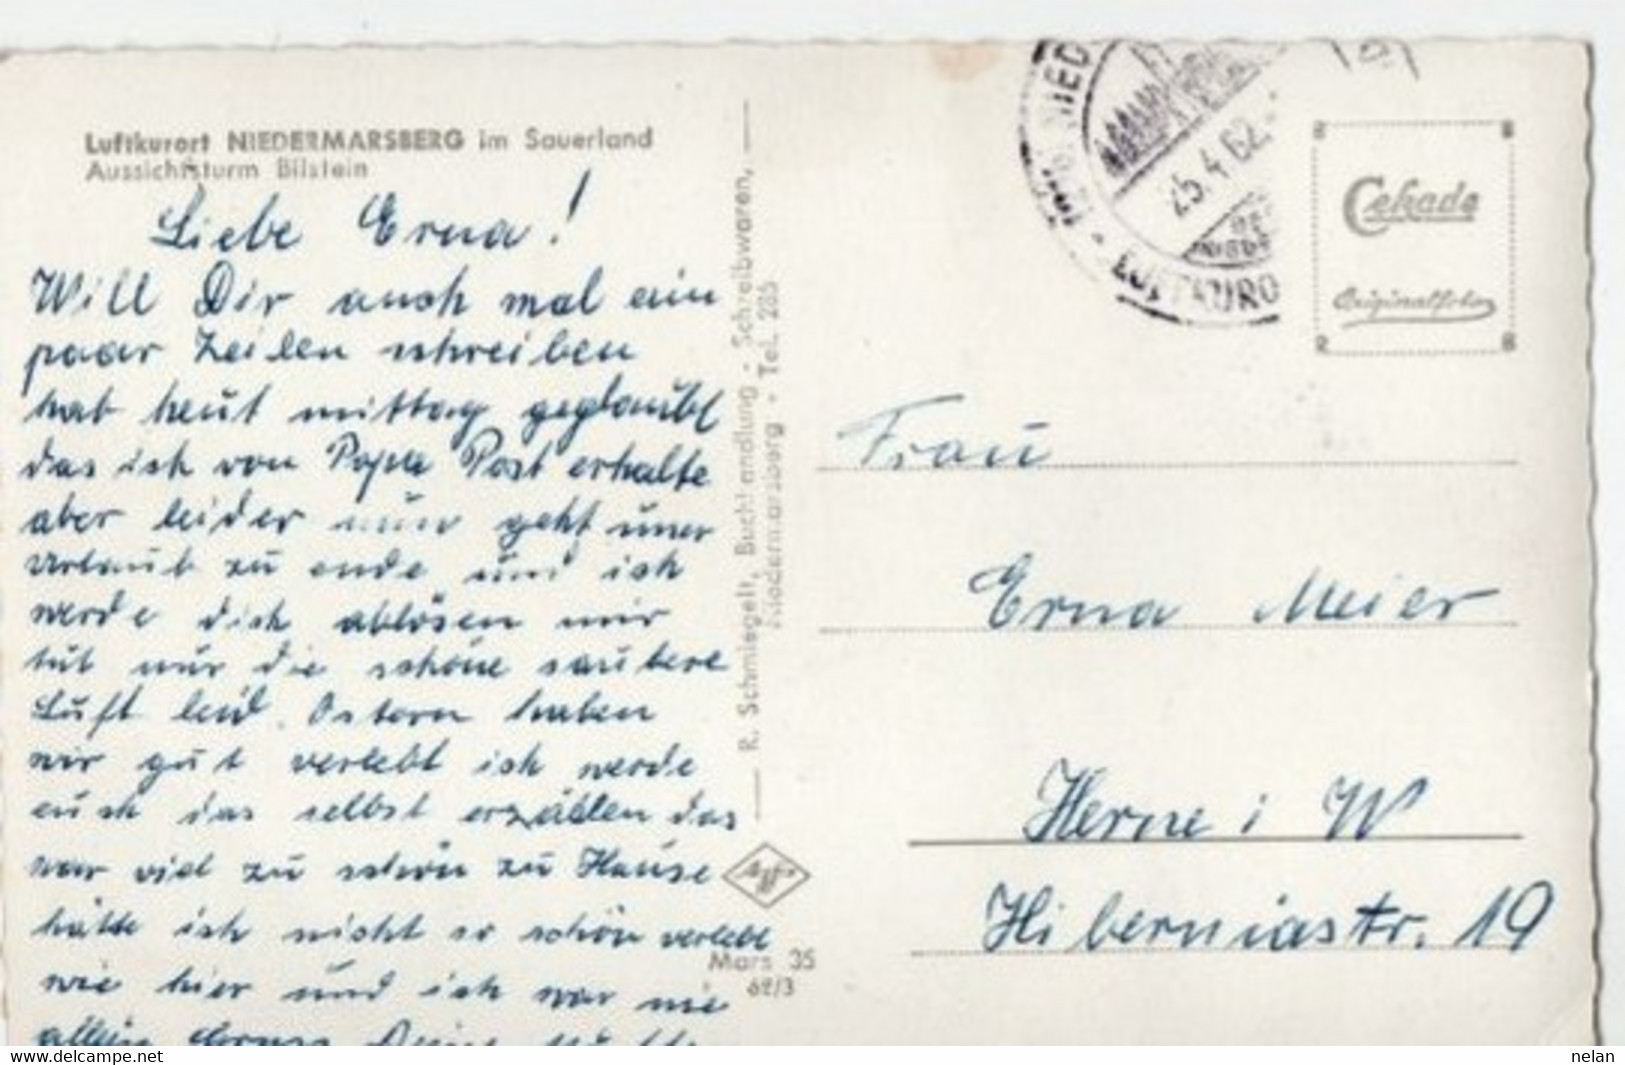 Luftkurort NIEDERMARSBERG im Sauerland
Aussichtsturm Bilstein
Liebe Erna!
Will Dir auch mal ein
paar Zeilen schreiben
hab heut mittag geglaubt
das ich von Papa Post erhalte
aber leider nun geht unser
Urlaub zu ende und ich
werde dich ablösen mir
tut nur die schöne saubere
Luft leid. Ostern haben
wir gut verlebt ich werde
euch das selbst erzählen das
war viel zu schön zu Hause
hätte ich nicht so schön verlebt
wie hier und ich war nie
allein Gruss Deine
R. Schmiegelt, Buchhandlung - Schreibwaren,
Niedermarsberg - Tel. 285
Agfa
Mars 35
62/3
NIED
25.4.62.
LUFTKURO
Cekade
Originalfoto
Frau
Erna Meier
Herne i W
Hiberniastr. 19
https://www.delcampe.net
nelan